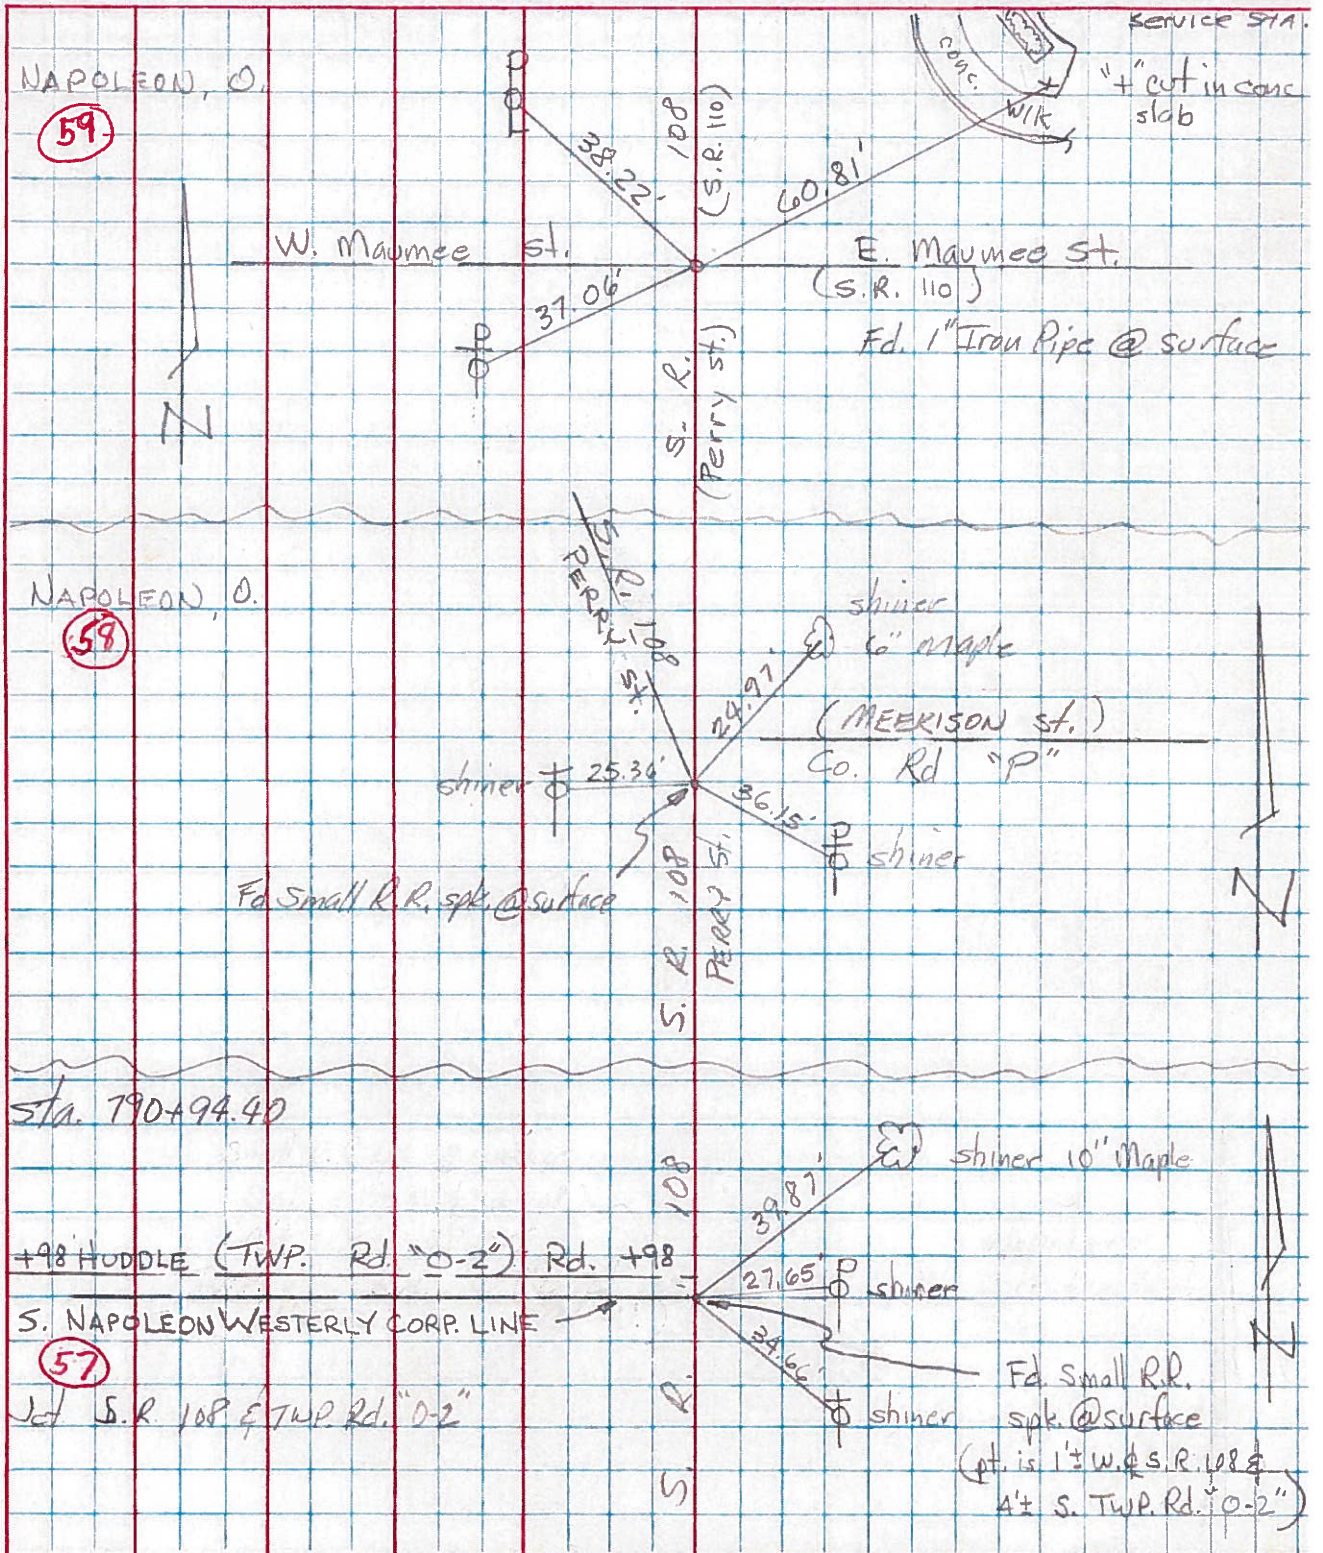 Service STA.
NAPOLEON, O.
59
conc.
W/K
"+" cut in conc
slab
38.22'
S. R. 108
(S.R. 110)
60.81'
W. Maumee St.
E. Maumee St.
(S.R. 110)
37.06'
P
Fd. 1" Iron Pipe @ surface
(Perry St.)
N
NAPOLEON, O.
58
S.R. 108
PERRY ST.
shiner
6" maple
24.97'
(MEEKISON St.)
Co. Rd "P"
shiner
25.36'
36.15'
P
shiner
Fd Small R.R. spk. @ surface
S. R. 108
PERRY St.
N
sta. 790+94.40
shiner 10" Maple
39.87'
S. R. 108
+98 HUDDLE (TWP. Rd. "O-2") Rd. +98
27.65'
P
shiner
S. NAPOLEON WESTERLY CORP. LINE
34.66'
N
57
Fd. Small R.R.
spk. @ surface
shiner
Jct S.R. 108 & TWP. Rd. "O-2"
(pt. is 1'± W. ℄ S.R. 108 &
4'± S. TWP. Rd. "O-2")